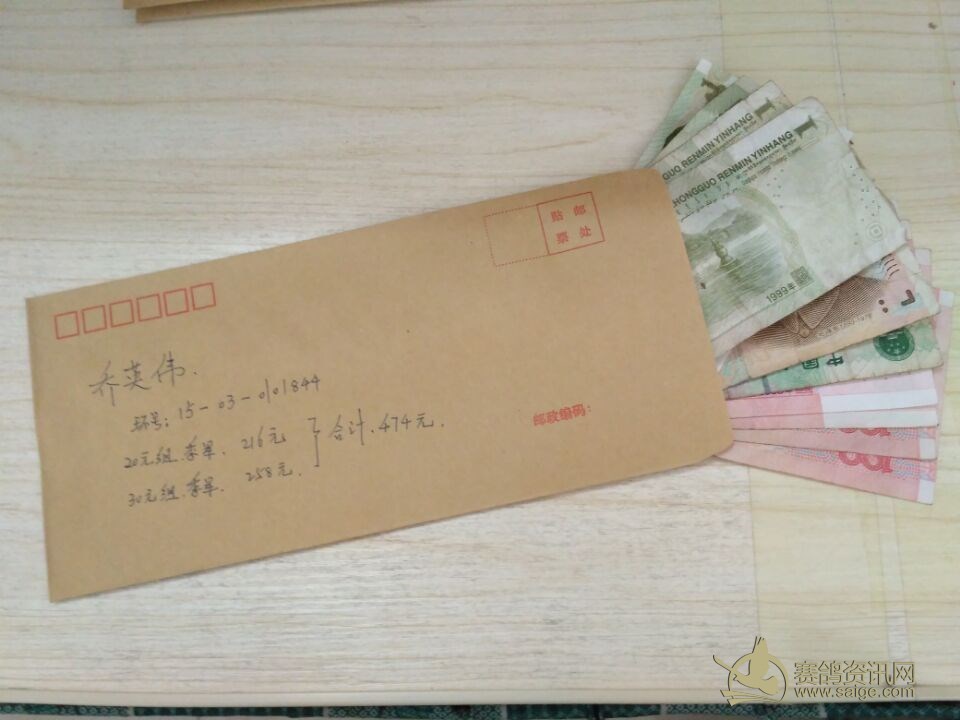 贴 邮
票 处
乔英伟.
环号: 15-03-0101844
20元组.季军. 216元
30元组.季军. 258元.
合计.474元.
邮政编码:
GUO RENMIN YINHANG 1
ZHONGGUO RENMIN YINHANG 1
1999年
中国
100
100
赛鸽资讯网
www.saige.com